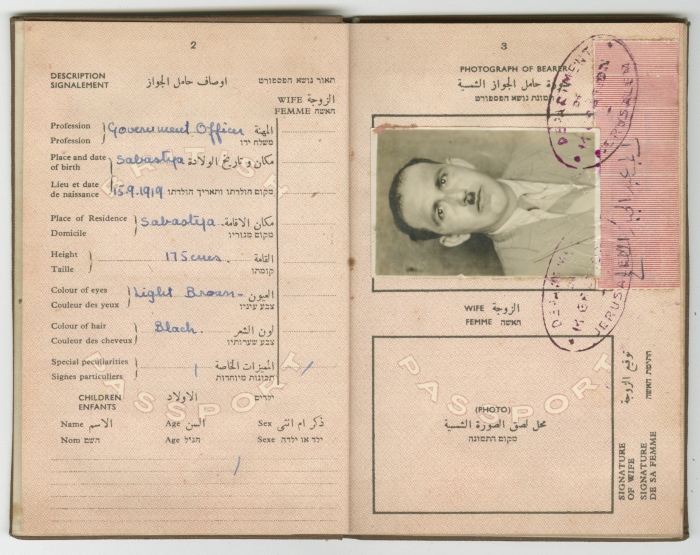 2
DESCRIPTION
SIGNALEMENT
اوصاف حامل الجواز
תאור נושא הפספורט
WIFE الزوجة
FEMME האשה
Profession
Profession
Government Officer
المهنة
משלח ידו
Place and date
of birth
Sabastya
مكان وتاريخ الولادة
Lieu et date
de naissance
15.9.1919
מקום הולדתו ותאריך הולדתו
Place of Residence
Domicile
Sabastya
مكان الاقامة
מקום מגוריו
Height
Taille
175 cms.
القامة
קומתו
Colour of eyes
Couleur des yeux
Light Brown
العيون
צבע עיניו
Colour of hair
Couleur des cheveux
Black.
لون الشعر
צבע שערותיו
Special peculiarities
Signes particuliers
المميزات الخاصة
תכונות מיוחדות
CHILDREN
ENFANTS
الاولاد
ילדים
Name الاسم Age السن Sex ذكر ام انثى
Nom השם Age הגיל Sexe ילד או ילדה
BRITISH
PASSPORT
3
PHOTOGRAPH OF BEARER
صورة حامل الجواز الشمسية
תמונת נושא הפספורט
DEPARTMENT
OF
JERUSALEM
WIFE الزوجة
FEMME האשה
JERUSALEM
PASSPORT
(PHOTO)
محل لصق الصورة الشمسية
מקום התמונה
SIGNATURE
OF WIFE
SIGNATURE
DE SA FEMME
توقيع الزوجة
חתימת האשה